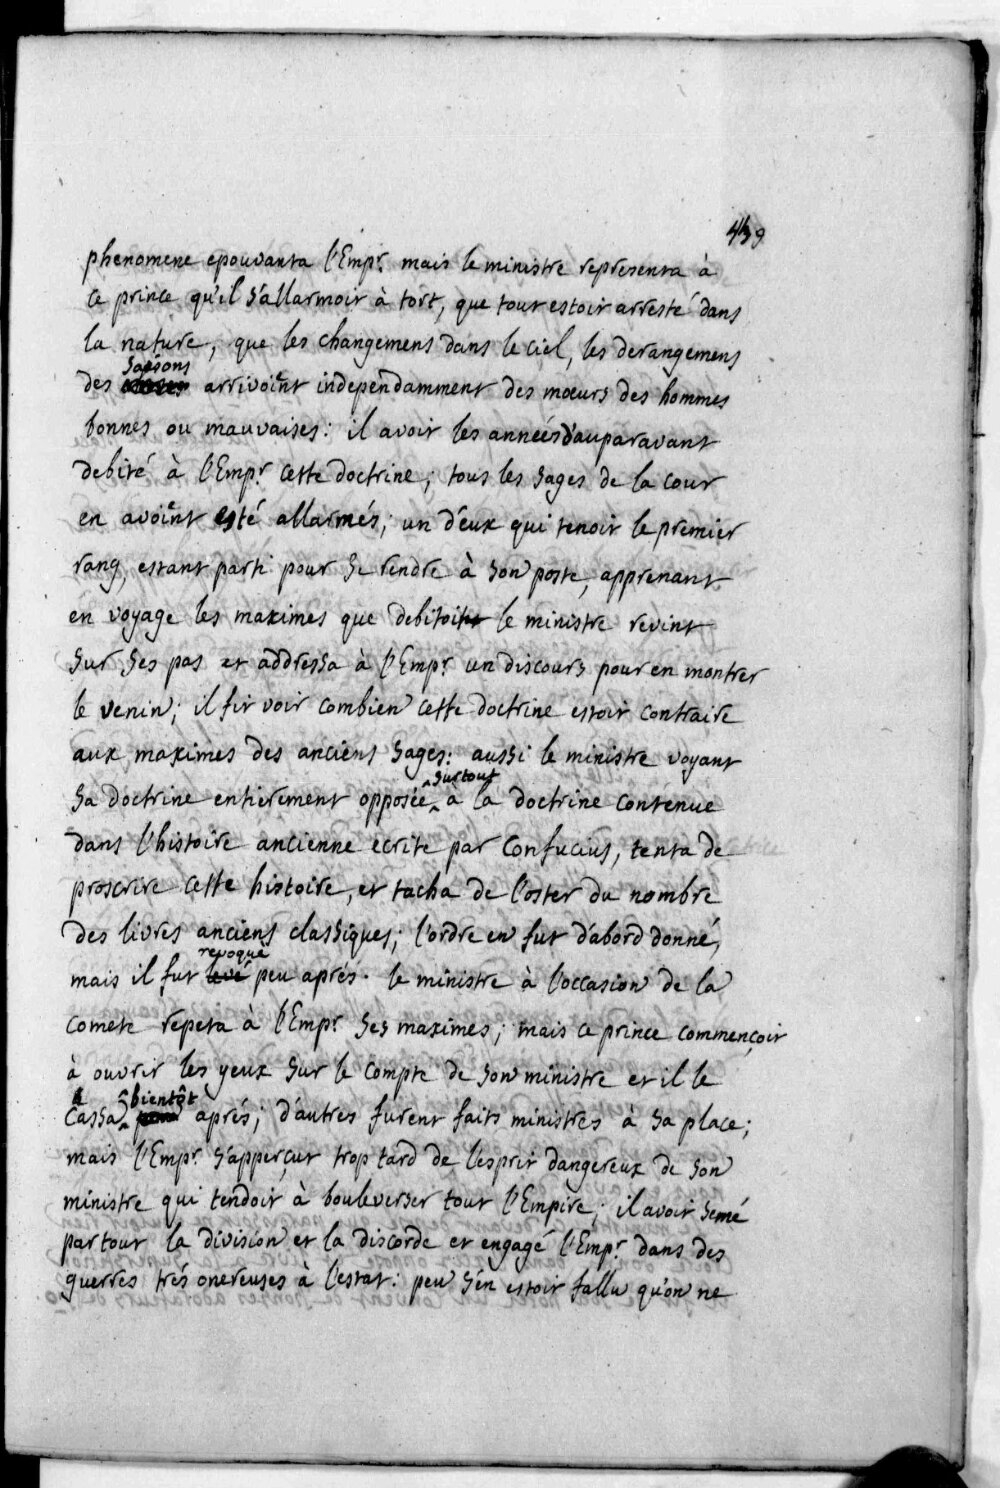 439
phenomene epouvanta l'Empr. mais le ministre representa à
ce prince qu'il s'allarmoit à tort, que tout estoit arresté dans
la nature, que les changemens dans le ciel, les derangemens
des saisons arrivoient independamment des mœurs des hommes
bonnes ou mauvaises: il avoit les années d'auparavant
debité à l'Empr. cette doctrine; tous les sages de la cour
en avoient esté allarmés; un d'eux qui tenoit le premier
rang, estant parti pour se rendre à son poste, apprenant
en voyage les maximes que debitoit le ministre revint
sur ses pas et addressa à l'Empr. un discours pour en montrer
le venin; il fit voir combien cette doctrine estoit contraire
aux maximes des anciens sages: aussi le ministre voyant
sa doctrine entierement opposée surtout à la doctrine contenue
dans l'histoire ancienne ecrite par Confucius, tenta de
proscrire cette histoire, et tacha de l'oster du nombre
des livres anciens classiques; l'ordre en fut d'abord donné,
mais il fut revoqué peu aprés. le ministre à l'occasion de la
comete repeta à l'Empr. ses maximes; mais ce prince commençoit
à ouvrir les yeux sur le compte de son ministre et il le
cassa bientôt aprés; d'autres furent faits ministres à sa place;
mais l'Empr. s'apperçut trop tard de l'esprit dangereux de son
ministre qui tendoit à bouleverser tout l'Empire; il avoit semé
partout la division et la discorde et engagé l'Empr. dans des
guerres trés onereuses à l'estat: peu s'en estoit fallu qu'on ne